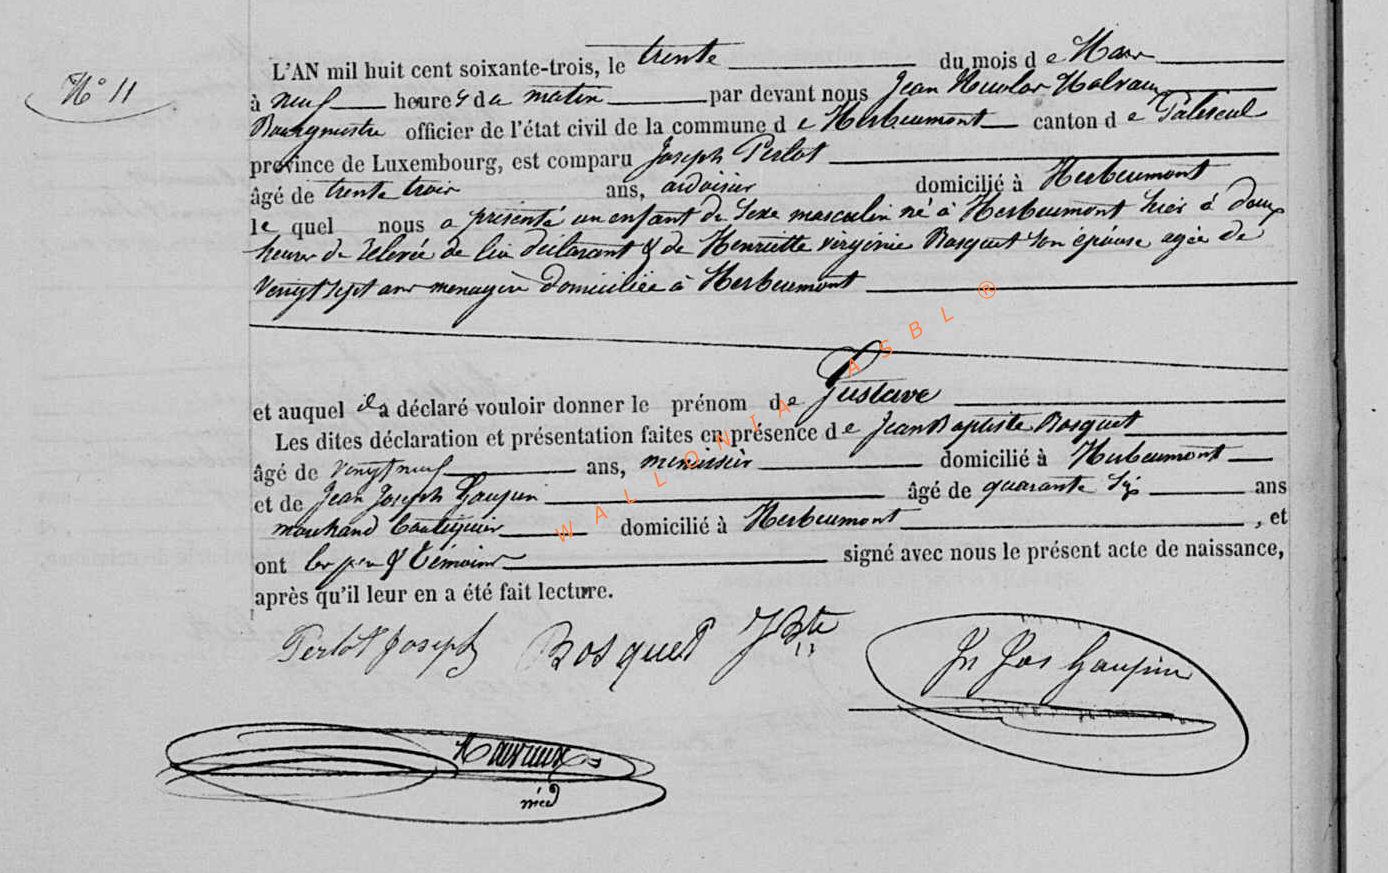 N° 11
L'AN mil huit cent soixante-trois, le trente du mois de Mars
à neuf heures du matin par devant nous Jean Nicolas
Bourgmestre officier de l'état civil de la commune de Herbeumont canton de Paliseul
province de Luxembourg, est comparu Joseph Perlot
âgé de trente trois ans, ardoisier domicilié à Herbeumont
lequel nous a présenté un enfant du Sexe masculin né à Herbeumont hier à deux
heures de relevée de lui déclarant & de Henriette virginie Bosquet son épouse agée de
Vengt sept ans menagère domiciliée à Herbeumont
et auquel il a déclaré vouloir donner le prénom de Gustave
Les dites déclaration et présentation faites en présence de Jean Baptiste Bosquet
âgé de vengt neuf ans, menuisier domicilié à Herbeumont
et de Jean Joseph Gaupin âgé de quarante Six ans
marchand boutiquier domicilié à Herbeumont, et
ont les père & témoins signé avec nous le présent acte de naissance,
après qu'il leur en a été fait lecture.
Perlot Joseph Bosquet J Bte Jn Jos Gaupin
WALLONIA ASBL ®